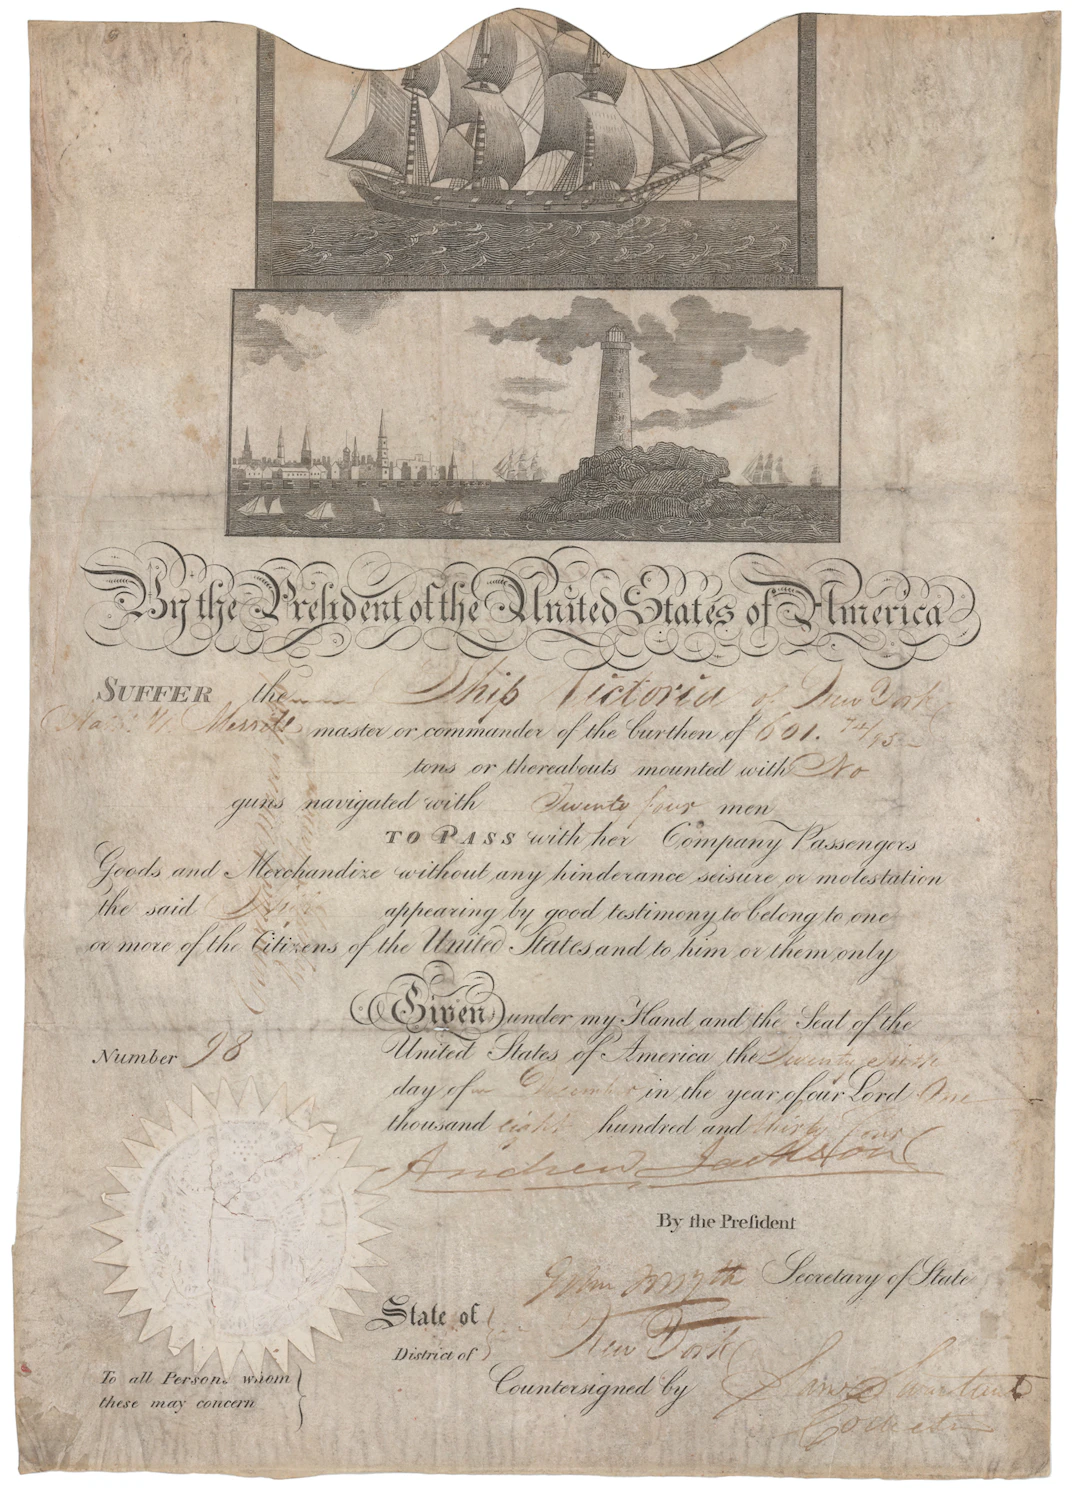 By the President of the United States of America
SUFFER the Ship Victoria of New York
W. Merrill master or commander of the burthen of 601. 72/95
tons or thereabouts mounted with No
guns navigated with Twenty four men
TO PASS with her Company Passengers
Goods and Merchandize without any hinderance seisure or molestation
the said Ship appearing by good testimony to belong to one
or more of the Citizens of the United States and to him or them only
Given under my Hand and the Seal of the
Number 98
United States of America the Twenty
day of December in the year of our Lord One
thousand eight hundred and thirty four
Andrew Jackson
By the President
John Forsyth Secretary of State
State of
New York
District of
Countersigned by Saml Swartwout
Collector
To all Persons whom
these may concern